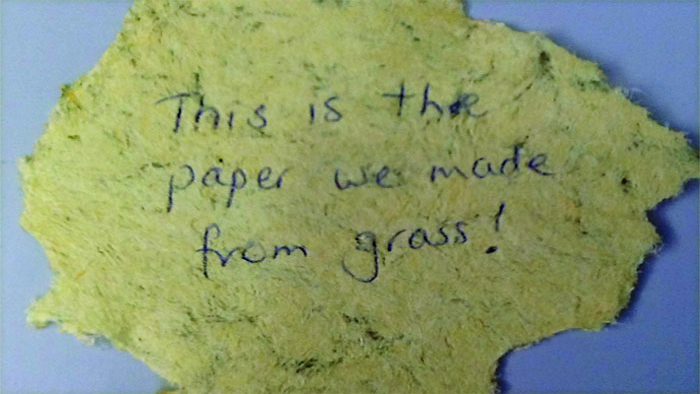 This is the
paper we made
from grass!